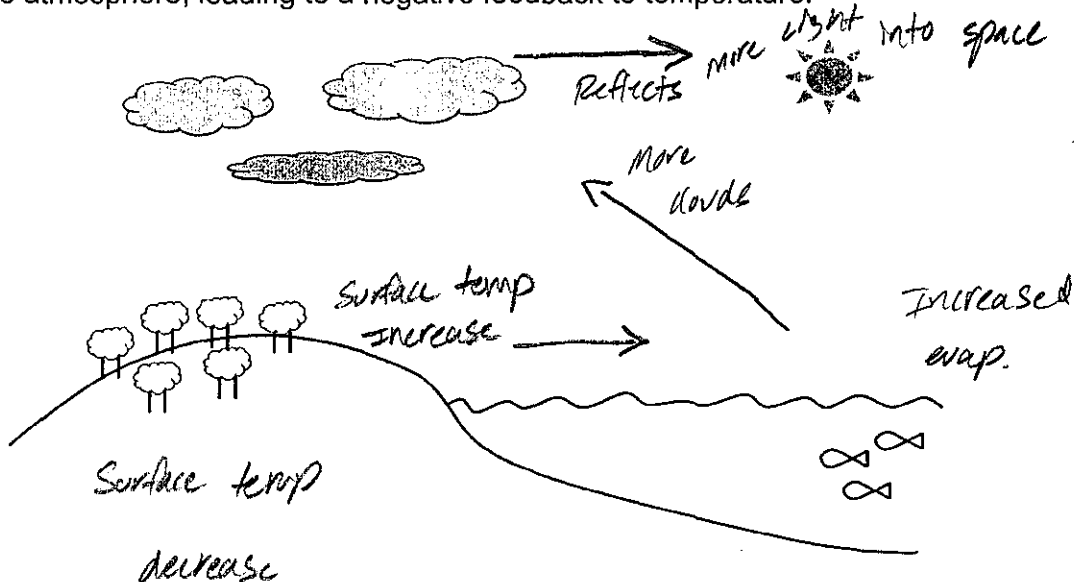 e atmosphere, leading to a negative feedback to temperature.
Reflects more light into space
More
clouds
Surface temp
Increase
Increased
evap.
Surface temp
decrease